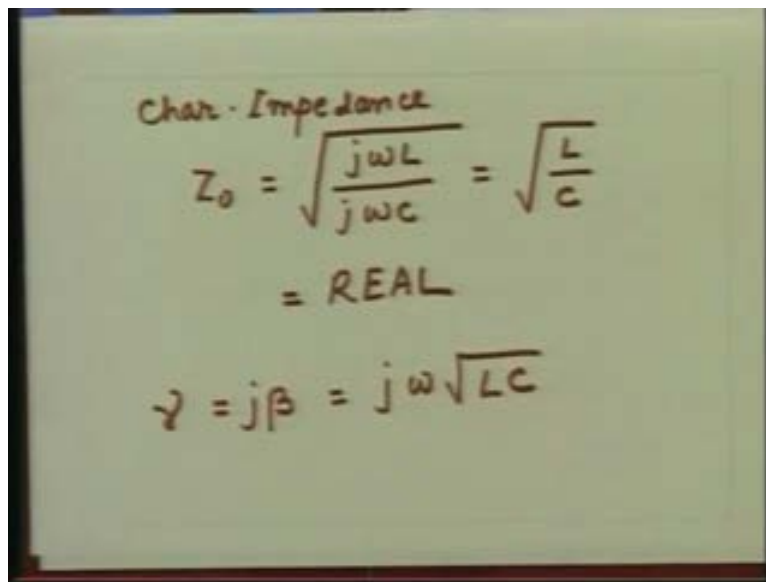 Char. Impedance
Z₀ = √(jωL / jωC) = √(L / C)
= REAL
γ = jβ = jω√(LC)